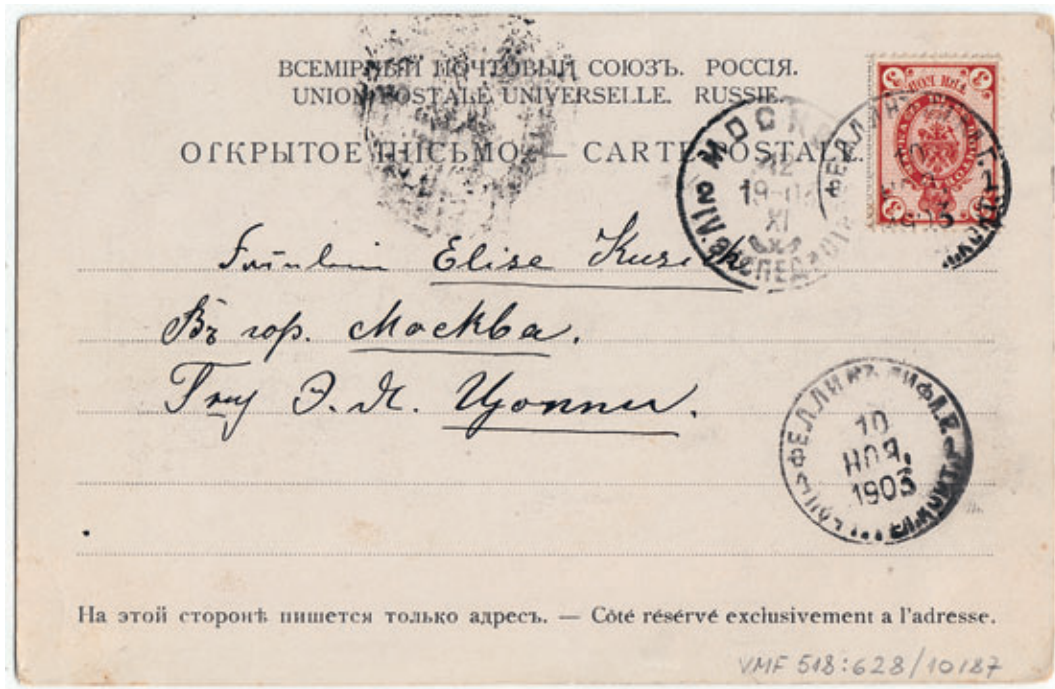 ВСЕМІРНЫЙ ПОЧТОВЫЙ СОЮЗЪ. РОССІЯ.
UNION POSTALE UNIVERSELLE. RUSSIE.
ОТКРЫТОЕ ПИСЬМО. — CARTE POSTALE.
МОСКВА
12
XI
ЭКСПЕД.
ФЕЛЛИНЪ
1903
3
3
3
3
Fräulein Elise
Въ гор. Москва.
Э.
ФЕЛЛИНЪ ЛИФЛ. Г.
10
НОЯ.
1903
На этой сторонѣ пишется только адресъ. — Côté résérvé exclusivement a l'adresse.
VMF 518:628/10187